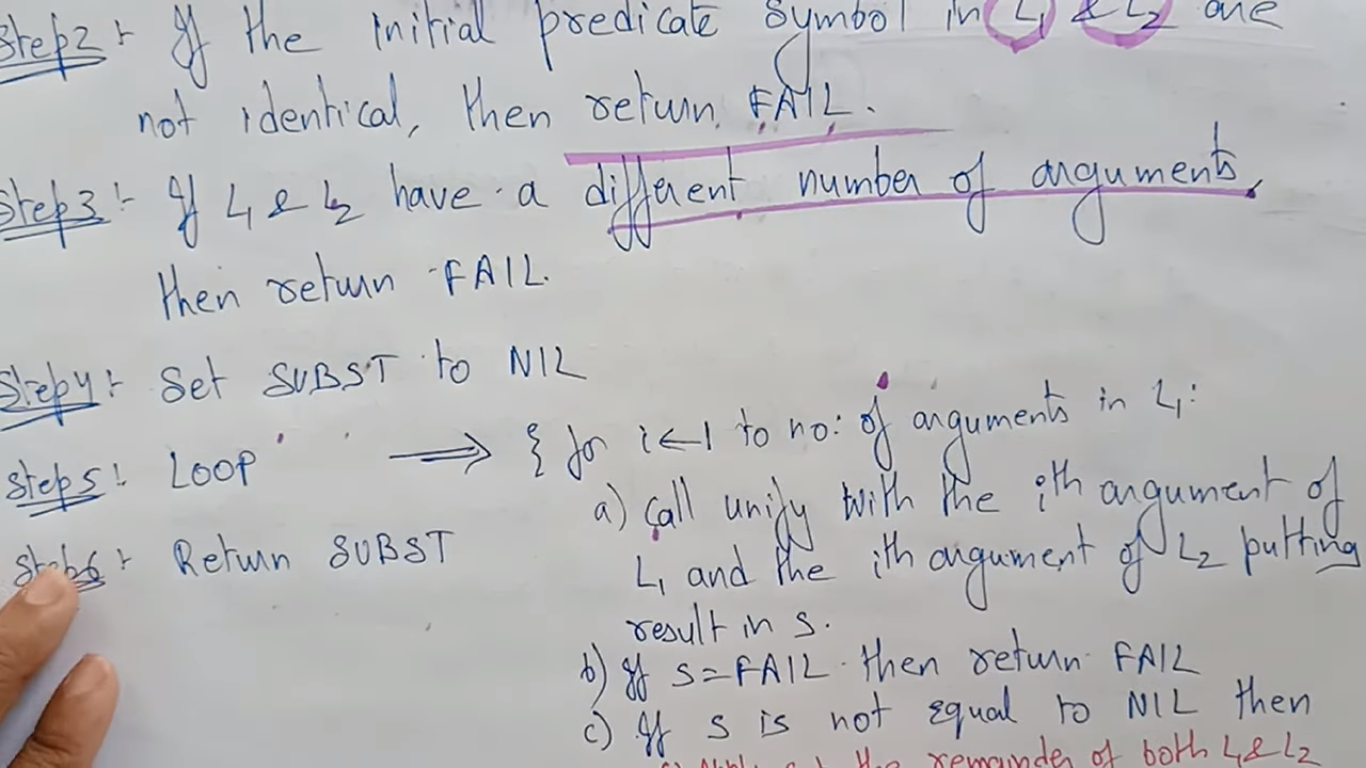 Step2:- If the initial predicate symbol in L1 & L2 are
not identical, then return FAIL.
Step3:- If L1 & L2 have a different number of arguments,
then return FAIL.
Step4:- Set SUBST to NIL
Step5:- LOOP ⟹ { for i←1 to no: of arguments in L1:
a) call unify with the ith argument of
L1 and the ith argument of L2 putting
result in S.
Step6:- Return SUBST
b) If S=FAIL then return FAIL
c) If S is not equal to NIL then
the remainder of both L1 & L2